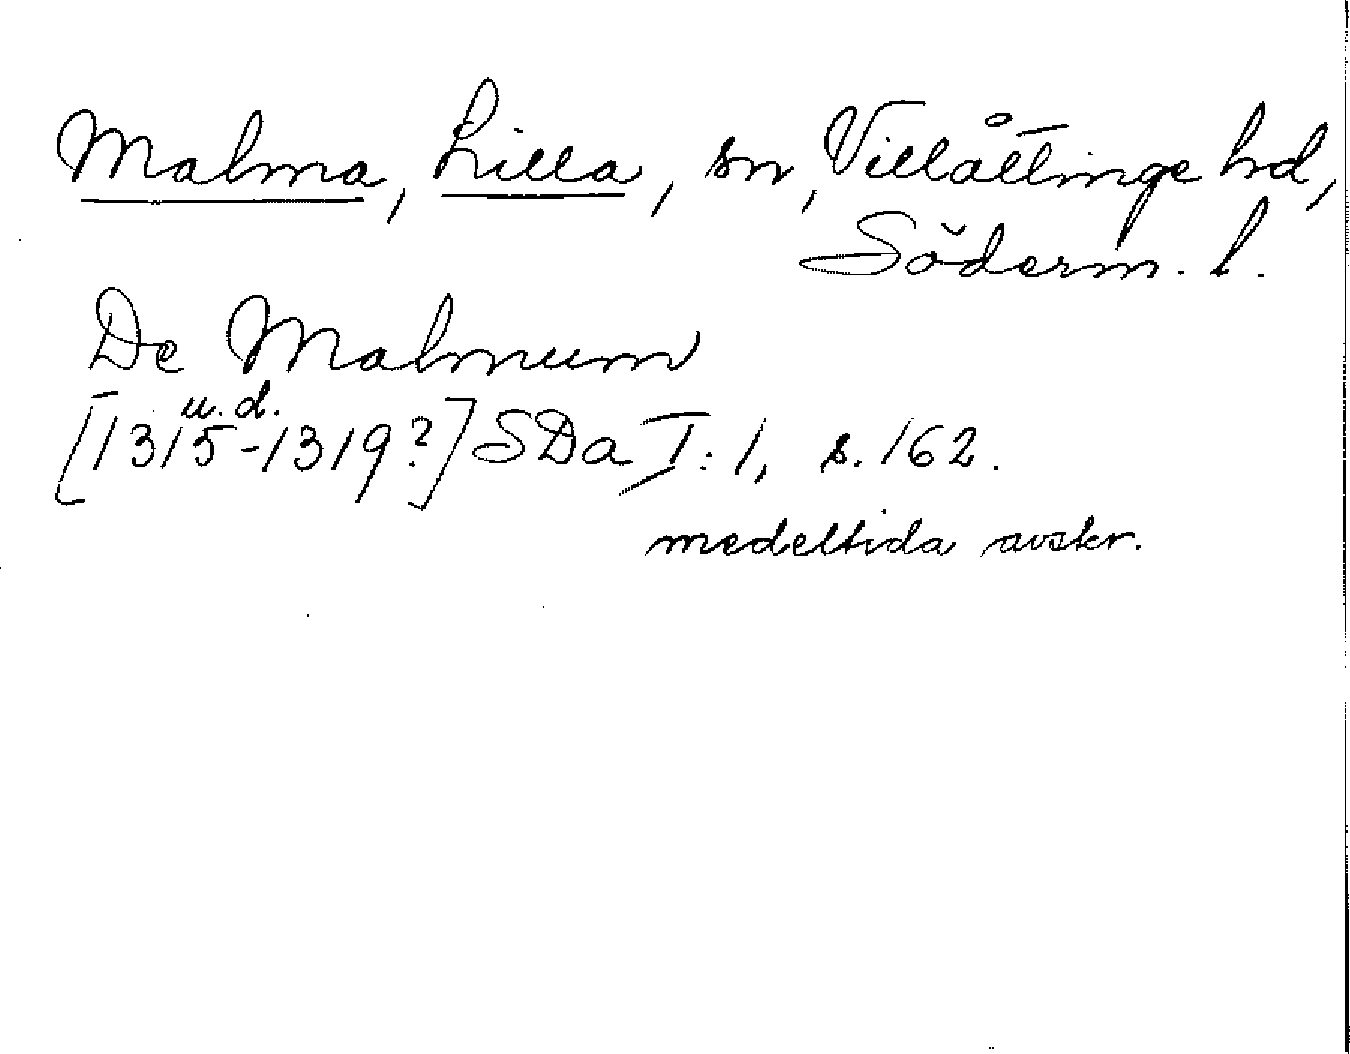 Malma, Lilla, sn, Villåttinge hd,
Söderm. l.
De Malmum
u. d.
[1315-1319?] SDa I: 1, s. 162.
medeltida avskr.